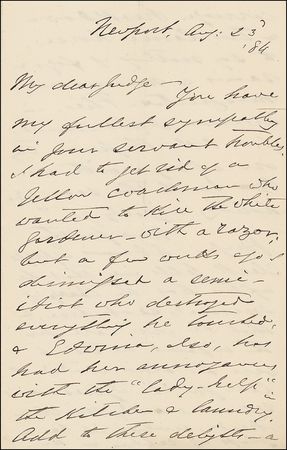 Newport, Aug: 23ᵈ
'84
My dear Judge — You have
my fullest sympathy
in your servant troubles.
I had to get rid of a
Yellow coachman who
wanted to kill the white
gardener — with a razor;
but a few weeks ago I
dismissed a semi-
idiot who destroyed
everything he touched;
& Edwina, also, has
had her annoyances
with the "lady-help" in
the kitchen & laundry.
Add to these delights — a